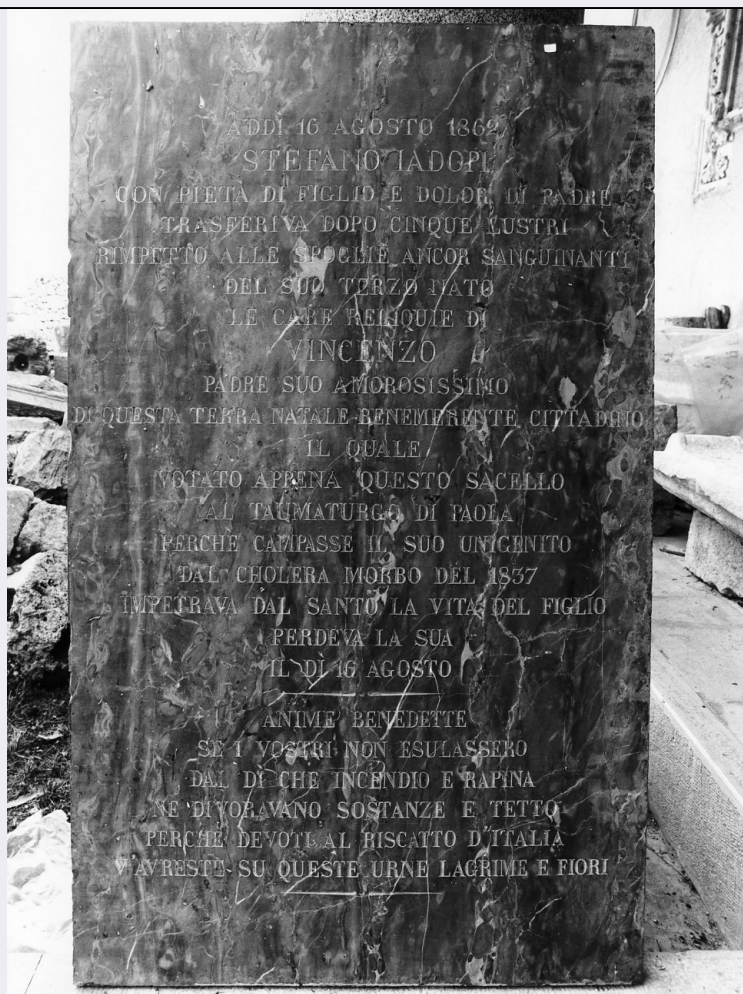 ADDÌ 16 AGOSTO 1862
STEFANO IADOPI
CON PIETÀ DI FIGLIO E DOLOR DI PADRE
TRASFERIVA DOPO CINQUE LUSTRI
RIMPETTO ALLE SPOGLIE ANCOR SANGUINANTI
DEL SUO TERZO NATO
LE CARE RELIQUIE DI
VINCENZO
PADRE SUO AMOROSISSIMO
DI QUESTA TERRA NATALE BENEMERENTE CITTADINO
IL QUALE
VOTATO APPENA QUESTO SACELLO
AL TAUMATURGO DI PAOLA
PERCHÈ CAMPASSE IL SUO UNIGENITO
DAL CHOLERA MORBO DEL 1837
IMPETRAVA DAL SANTO LA VITA DEL FIGLIO
PERDEVA LA SUA
IL DÌ 16 AGOSTO
ANIME BENEDETTE
SE I VOSTRI NON ESULASSERO
DAL DÌ CHE INCENDIO E RAPINA
NE DIVORAVANO SOSTANZE E TETTO
PERCHÈ DEVOTI AL RISCATTO D'ITALIA
V'AVRESTE SU QUESTE URNE LAGRIME E FIORI